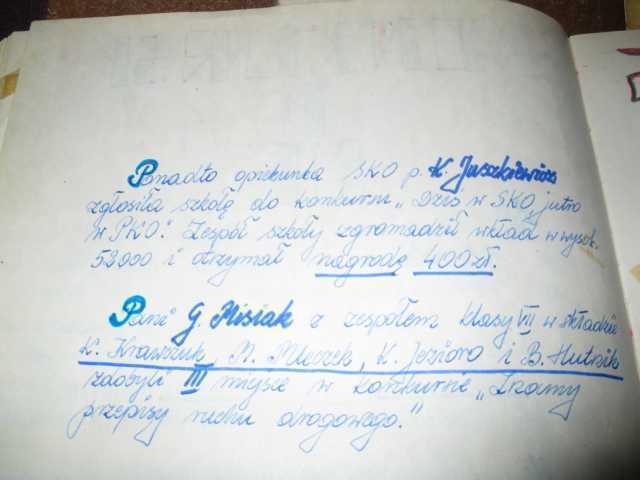 Ponadto opiekunka SKO p. K. Juszkiewicz
zgłosiła szkołę do konkursu „Dziś w SKO, jutro
w PKO". Zespół szkoły zgromadził wkład w wysok.
52000 i otrzymał nagrodę 400 zł.
Pani G. Misiak z zespołem klasy VII w składzie
K. Krawczuk, M. Mleczek, K. Jezioro i B. Hutnik
zdobyli III miejsce w konkursie „Znamy
przepisy ruchu drogowego."